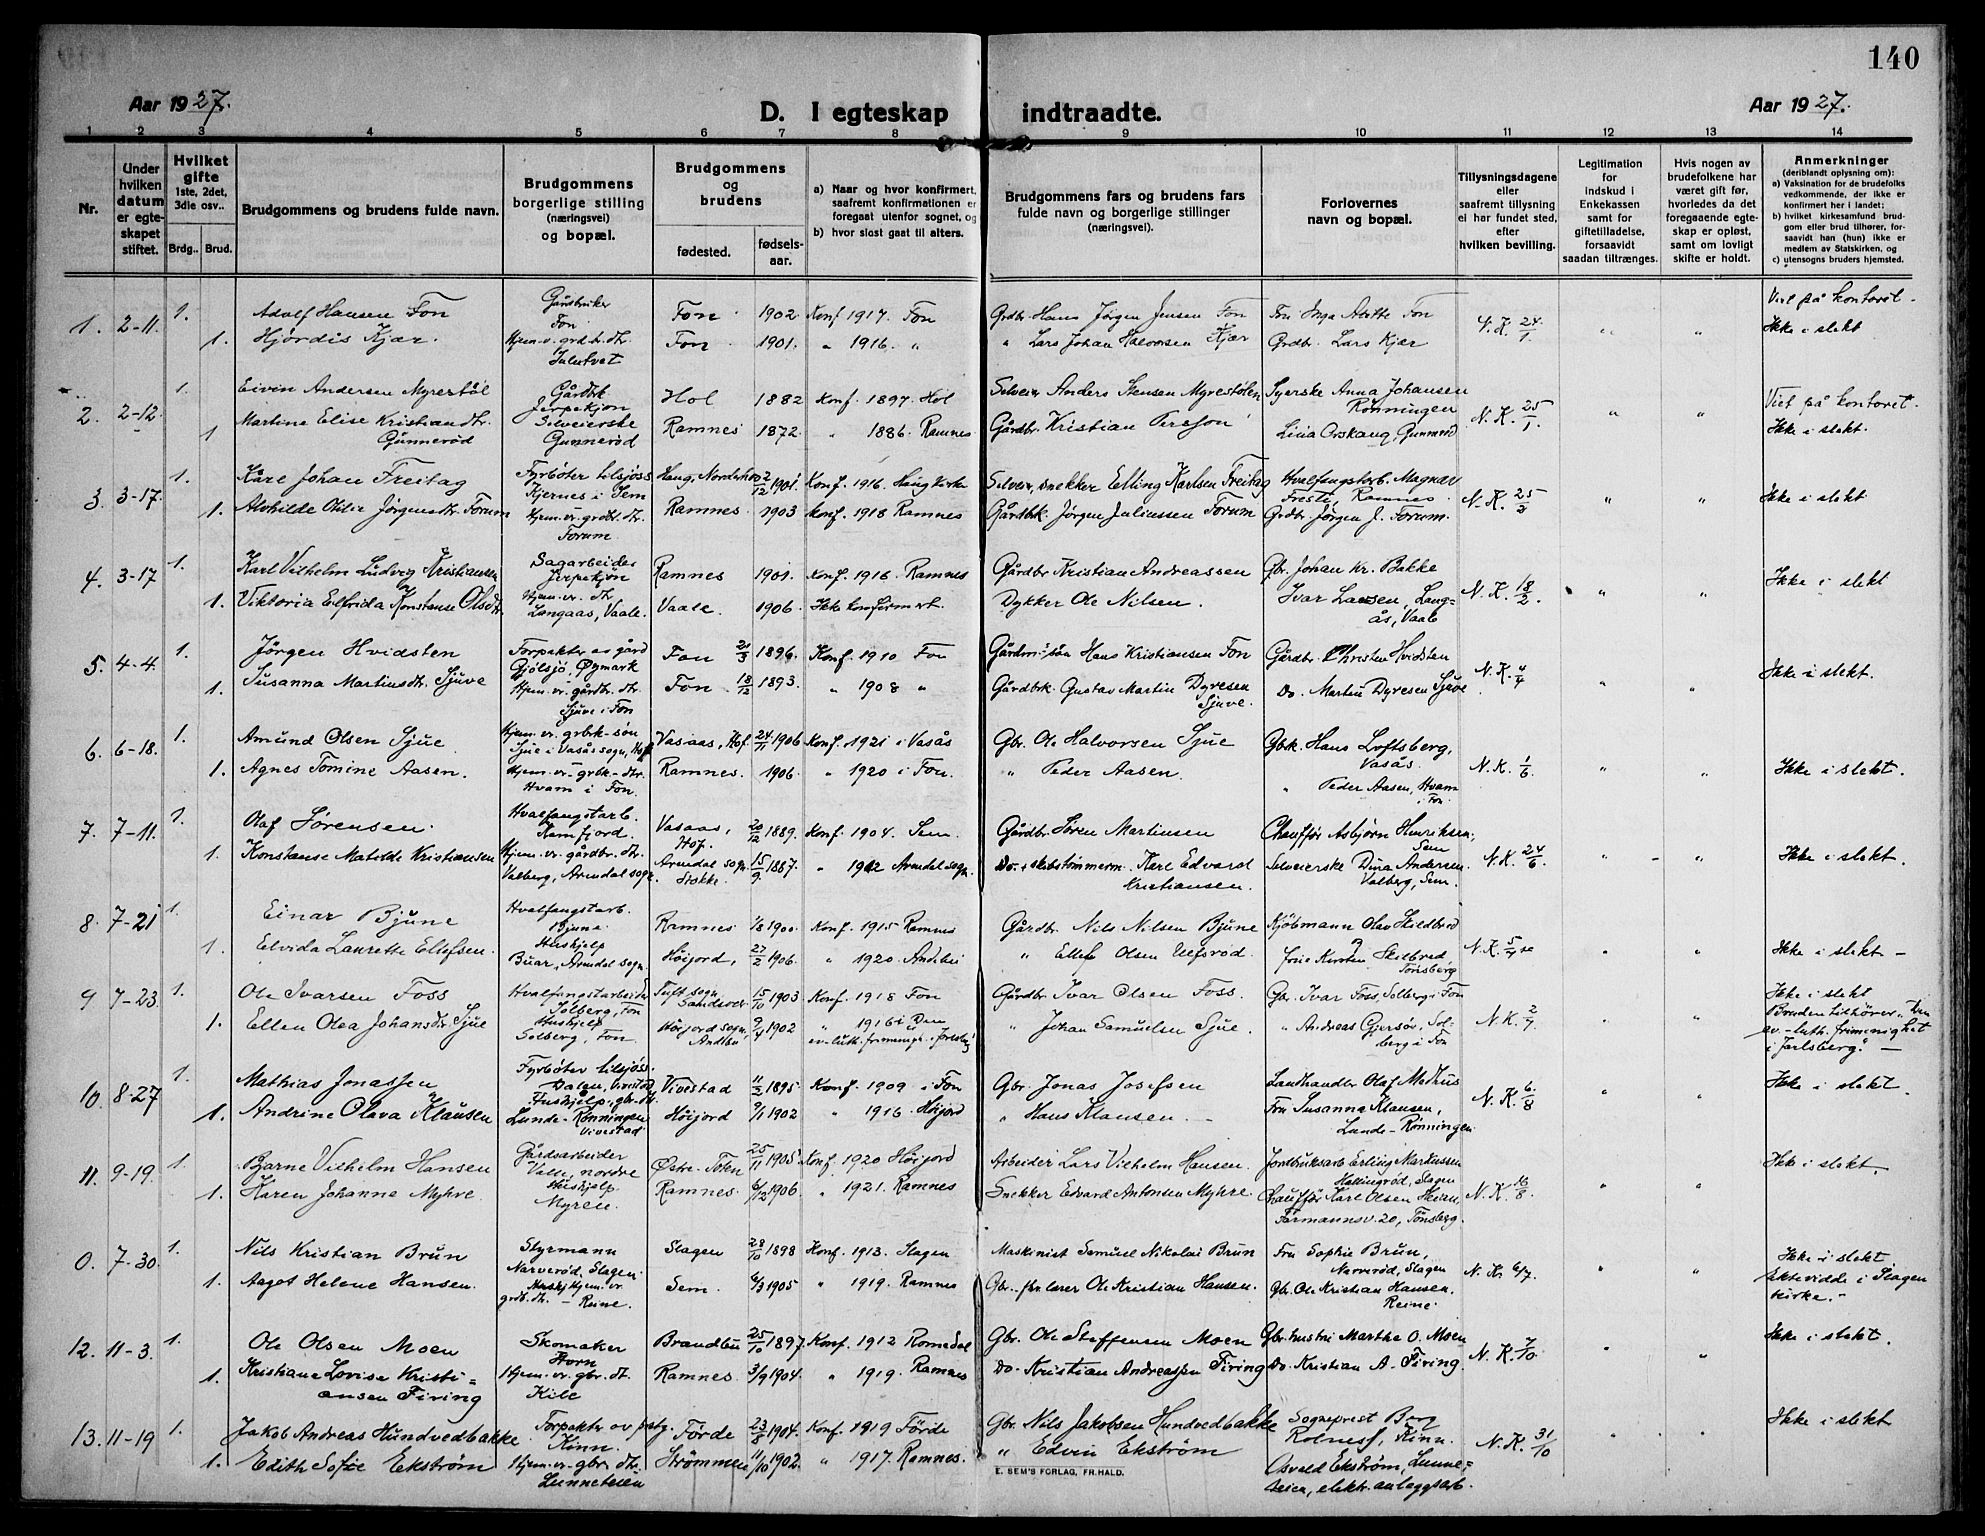 140
Aar 1927.
D. I egteskap indtraadte.
Aar 1927.
1 2 3 4 5 6 7 8 9 10 11 12 13 14
Nr.
Under hvilken datum er egteskapet stiftet.
Hvilket gifte 1ste, 2det, 3die osv..
Brdg.. Brud.
Brudgommens og brudens fulde navn.
Brudgommens borgerlige stilling (næringsvei) og bopæl.
Brudgommens og brudens
fødested. fødsels-aar.
a) Naar og hvor konfirmert, saafremt konfirmationen er foregaat utenfor sognet, og
b) hvor sidst gaat til alters.
Brudgommens fars og brudens fars fulde navn og borgerlige stillinger (næringsvei).
Forlovernes navn og bopæl.
Tillysningsdagene eller saafremt tillysning ei har fundet sted, efter hvilken bevilling.
Legitimation for indskud i Enkekassen samt for giftetilladelse, forsaavidt saadan tiltrænges.
Hvis nogen av brudefolkene har været gift før, hvorledes da det foregaaende egteskap er opløst, samt om lovligt skifte er holdt.
Anmerkninger (deriblandt oplysning om):
a) Vaksination for de brudefolks vedkommende, der ikke er konfirmert her i landet;
b) hvilket kirkesamfund brudgom eller brud tilhører, forsaavidt han (hun) ikke er medlem av Statskirken, og
c) utensogns bruders hjemsted.
1. 2-11. 1. Adolf Hansen Fon Gårdbruker Fon. Fon 1902 Konf 1917. Fon Grdbr. Hans Jørgen Jensen Fon Fru Inga Fon N.K. 24/1 " " Viet på kontoret.
1. Hjørdis Kjær. Hjem.v. grd.b. dtr. Fon 1901. " 1916. " " Lars Johan Halvorsen Kjær Grdbr. Lars Kjær Ikke i slekt
2. 2-12. 1. Eivin Andersen Myrestøl Gårdbk Jerpekjøn Hol 1882 Konf. 1897. Hol Selveier Anders Stensen Myrestølen Syerske Anna Johansen Rønningen N.K. 25/1. " " Viet på kontoret.
1 Martine Elise Kristiandtr. Gunnerød Selveierske Gunnerød Ramnes 1872. " 1886. Ramnes Gårdbr. Kristian Persson Lina Orskaug, Gunnerød Ikke i slekt.
3. 3-17. 1. Kåre Johan Freitag Fyrbøter tilsjøss Kjernes i Sem Haug, Norderhov 2/12 1901. Konf. 1916. Haug kirke Selveier, snekker Elling Karlsen Freitag Hvalfangstarb. Magnar Freste, Ramnes. N.K. 25/2 " " Ikke i slekt
1. Alvhilde Otilie Jørgensdtr. Forum Hjem.vr. grdbr. dtr. Forum. Ramnes. 1903 Konf. 1918 Ramnes Gårdbk. Jørgen Juliussen Forum Grdbr. Jørgen J. Forum.
4. 3-17 1. Karl Vilhelm Ludvig Kristiansen Sagarbeider Jerpekjøn Ramnes 1901. Konf. 1916. Ramnes Gårdbr. Kristian Andreassen Gbr. Johan Kr. Bakke N.K. 18/2. " " Ikke i slekt
1. Viktoria Elfrida Konstanse Olsdtr. Hjem.vr. dtr. Langaas, Vaale. Vaale. 1906. Ikke konfirmert. Dykker Ole Nilsen. Ivar Larsen, Langås, Vaale
5. 4-4. 1. Jørgen Hvidsten Forpakter av gård Gjølsjø, Øymark Fon 21/3 1896. Konf. 1910 Fon Hans Kristiansen Fon Gårdbr. Christen Hvidsten N.K. 4/4 " " Ikke i slekt.
1. Susanna Martinsdtr. Sjuve Hjem.vr. gårdbr. dtr. Sjuve i Fon Fon. 18/12 1893. " 1908 " Gårdbrk. Gustav Martin Dyresen Sjuve. Do. Martin Dyresen Sjuve
6. 6-18. 1. Amund Olsen Sjue Hjem.vr. grbk-søn Sjue i Vasås sogn, Hof Vasaas, Hof. 24/11 1906 Konf. 1921 i Vasås Gbr. Ole Halvorsen Sjue Gbk. Hans Loftsberg, Vasås. N.K. 1/6 " " Ikke i slekt.
1. Agnes Tomine Aasen. Hjem.vr. grbk-dtr. Hvam i Fon. Ramnes. 1906. " 1920 i Fon. " Peder Aasen. " Peder Aasen, Hvam i Fon.
7. 7-11. 1. Olaf Sørensen. Hvalfangstarb. Ramfjord. Vasaas, Hof. 20/12 1889. Konf. 1904. Sem. Gårdbr. Søren Martinsen Chauffør Asbjørn Henriksen, Sem N.K. 24/6. " " Ikke i slekt.
1. Konstanse Matilde Kristiansen Hjem.vr. gårdbr. dtr. Valberg, Arendal sogn. Arendal sogn. Stokke. 15/9 1887. " 1902 Arendal sogn. Do. + skibstømmerm. Karl Edvard Kristiansen. Selveierske Dina Andersen Valberg, Sem.
8. 7-21 1. Einar Bjune Hvalfangstarb. Bjune. Ramnes 1/8 1900. Konf. 1915 Ramnes Gårdbr. Nils Nilsen Bjune Kjøbmann Olav Skildbred N.K. 5/7 " " Ikke i slekt —
1. Elvida Laurette Ellefsen. Hushjelp Buar, Arendal sogn. Høijord, 27/2 1906. " 1920. Andebu " Ellef Olsen Ulfsrød. Frue Kirsten Skilbred, Tønsberg
9 7-23. 1. Ole Ivarsen Foss Hvalfangstarbeider Solberg, Fon Tuft sogn Sandsver 15/10 1903 Konf. 1918 Fon Gårdbr. Ivar Olsen Foss. Gbr. Ivar Foss, Solberg i Fon N.K. 2/7. " " Ikke i slekt
1. Ellen Olea Johansdtr. Sjue Hushjelp Solberg, Fon. Høijord sogn, Andebu 9/4 1902 " 1916 i Den ev.luth. frimenigh. i Jarlsberg " Johan Samuelsen Sjue. " Andreas Gjersøe, Solberg i Fon Bruden tilhører "Den ev.-luth. frimenighet i Jarlsberg". —
10. 8-27 1. Mathias Jonassen Fyrbøter tilsjøss. Dalen, Vivestad Vivestad 11/2 1895 Konf. 1909 i Fon Gbr. Jonas Josefsen Landhandler Olaf Medhus N.K. 6/8 " " Ikke i slekt.
1. Andrine Olava Klausen Hushjelp, gbr. dtr. Lunde-Rønningen Vivestad Høijord 9/1 1902 " 1916. Høijord " Hans Klausen. — Fru Susanna Klausen, Lunde-Rønningen
11. 9-19. 1. Bjarne Vilhelm Hansen Gårdsarbeider Valle nordre Østre Toten 25/11 1905 Konf. 1920 Høijord Arbeider Lars Vilhelm Hansen. Jordbruksarb Erling Markussen Hallingrød, Slagen N.K. 16/8. " " Ikke i slekt.
1. Karen Johanne Myhre. Hushjelp Myren. Ramnes. 6/12 1906. " 1921. Ramnes Snekker Edvard Antonsen Myhre. Chauffør Karl Olsen Hvam, Farmannsv. 20, Tønsberg.
0. 7-30. 1. Nils Kristian Brun Styrmann Narverød, Slagen Slagen 28/10 1898 Konf. 1913. Slagen Maskinist Samuel Nikolai Brun Fru Sophie Brun, Narverød, Slagen N.K. 6/7. " " Ikke i slekt
1. Aagot Helene Hansen. Hjem.vr. grdb. dtr. — Reine. Sem. 6/3 1905 " 1919. Ramnes Gbr. Ole Kristian Hansen. Gbr. Ole Kristian Hansen. Reine. Ektevidde i Slagen kirke. —
12. 11-3. 1. Ole Olsen Moen Skomaker Horn Brandbu 25/10 1897 Konf. 1912 Romedal Gbr. Ole Steffensen Moen Gbr.hustru Marthe O. Moen N.K. 7/10 " " Ikke i slekt.
1. Kristiane Lovise Kristiansen Firing Hjem.vr. gbr. dt. Kile Ramnes. 3/9 1904. " 1919. Ramnes Do. Kristian Andreassen Firing Do. Kristian A. Firing.
13. 11-19 1. Jakob Andreas Hundvedbakke Forpakter av prstg. Kinn. Førde 23/8 1904. Konf. 1919 Førde Gbr. Nils Jakobsen Hundvedbakke Sogneprest Borg Rolnesf, Kinn. N.K. 31/10 " " Ikke i slekt
1. Edith Sofie Ekstrøm Hjem.vr. gbr. dtr. Lunneteien Strømmen 11/10 1902. " 1917. Ramnes. " Edvin Ekstrøm Osvald Ekstrøm, Lunneteien, elektr. anleggsarb.
E. SEM'S FORLAG, FR.HALD.